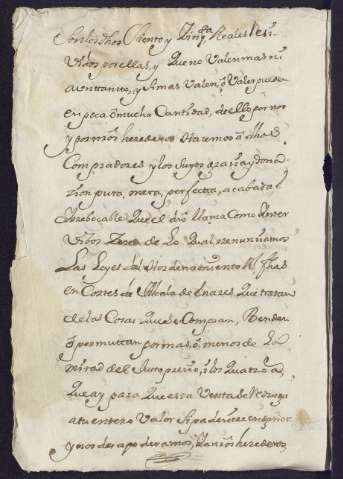 son los dhos Ciento y Zinqta Reales Res
Vidos por ellas, y Que no Valen mas ni
aun tanto, y si mas Valen, o Valer pueden
en poca o mucha Cantidad, de ello por nos
y por nros herederos Hazemos a dhos
Compradores y los suyos grazia y dona
Zion pura, mera, perfecta, acabada e
Yrrebocable Que el dro llama Como Ynter
Vibos Zerca de Lo Qual renunziamos
Las Leyes del Hordenamiento Rl fhas
en Cortes de Alcala de Enares Que tratan
de las Cosas Que se Compran, Benden
o permuttan por mas, o menos de La
mitad del Justo prezio, i los Quatro a
Que ay para Que esta Venta de Reduzga
a tu entero Valor
y nos desapoderamos, i a nros herederos,